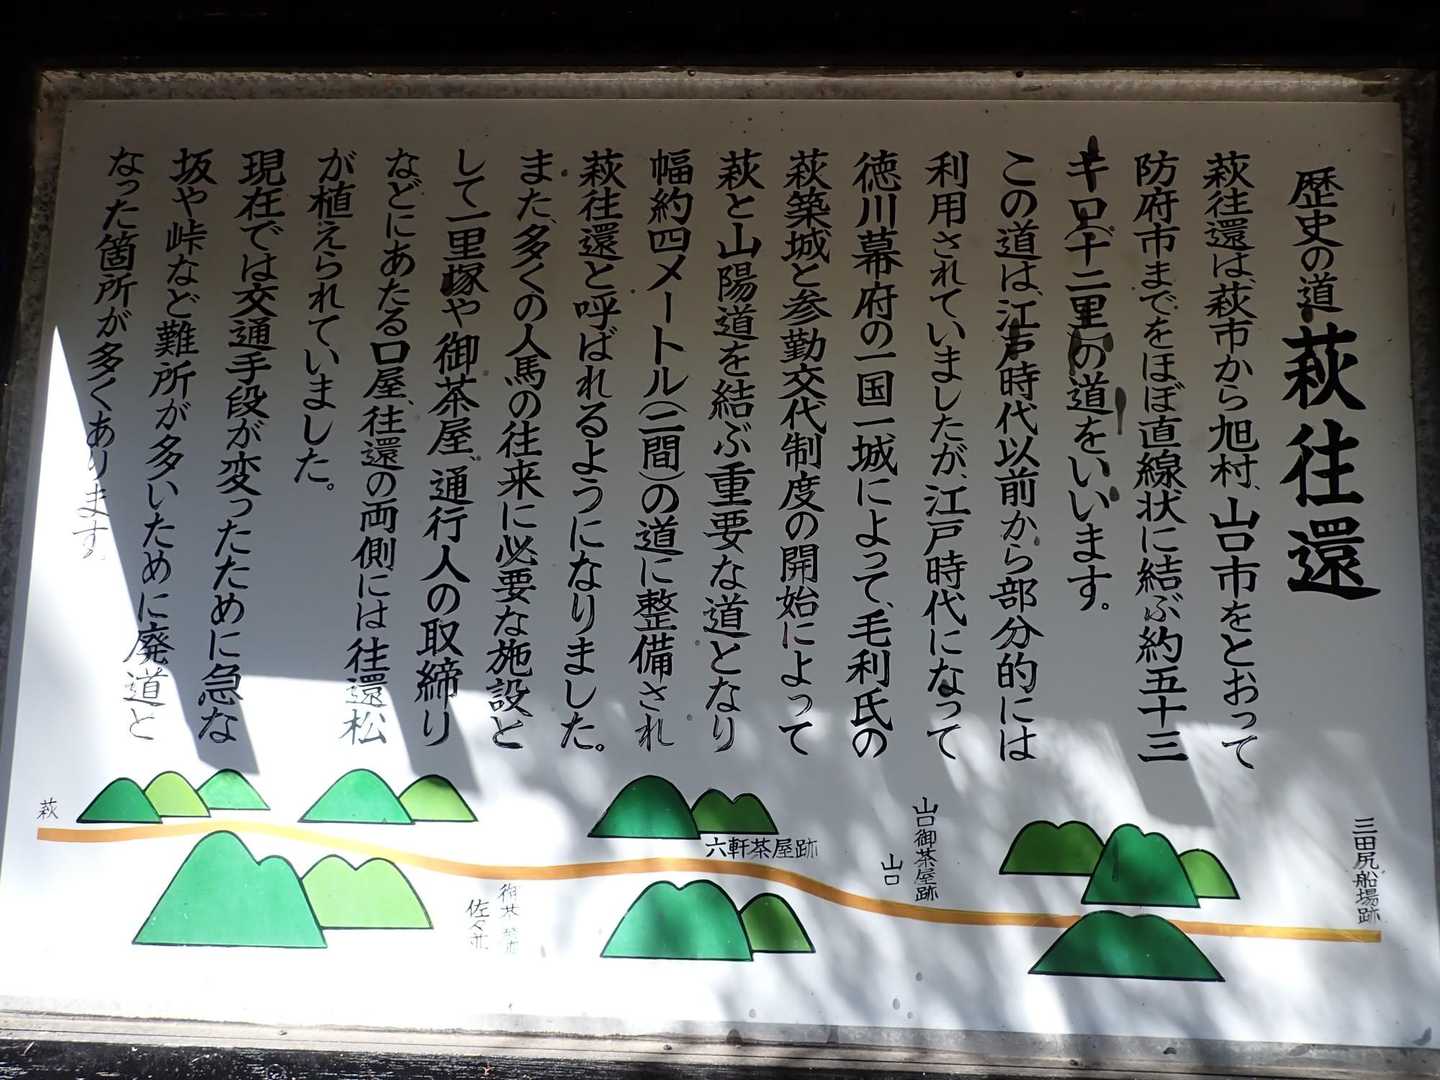 歴史の道 萩往還
萩往還は、萩市から旭村、山口市をとおって
防府市までをほぼ直線状に結ぶ約五十三
キロ(十二里)の道をいいます。
この道は、江戸時代以前から部分的には
利用されていましたが、江戸時代になって
徳川幕府の一国一城によって、毛利氏の
萩築城と参勤交代制度の開始によって
萩と山陽道を結ぶ重要な道となり
幅約四メートル(二間)の道に整備され
萩往還と呼ばれるようになりました。
また、多くの人馬の往来に必要な施設と
して一里塚や御茶屋、通行人の取締り
などにあたる口屋、往還の両側には往還松
が植えられていました。
現在では交通手段が変ったために急な
坂や峠など難所が多いために廃道と
なった箇所が多くあります。
三田尻船場跡
山口御茶屋跡
山口
六軒茶屋跡
佐々並
萩